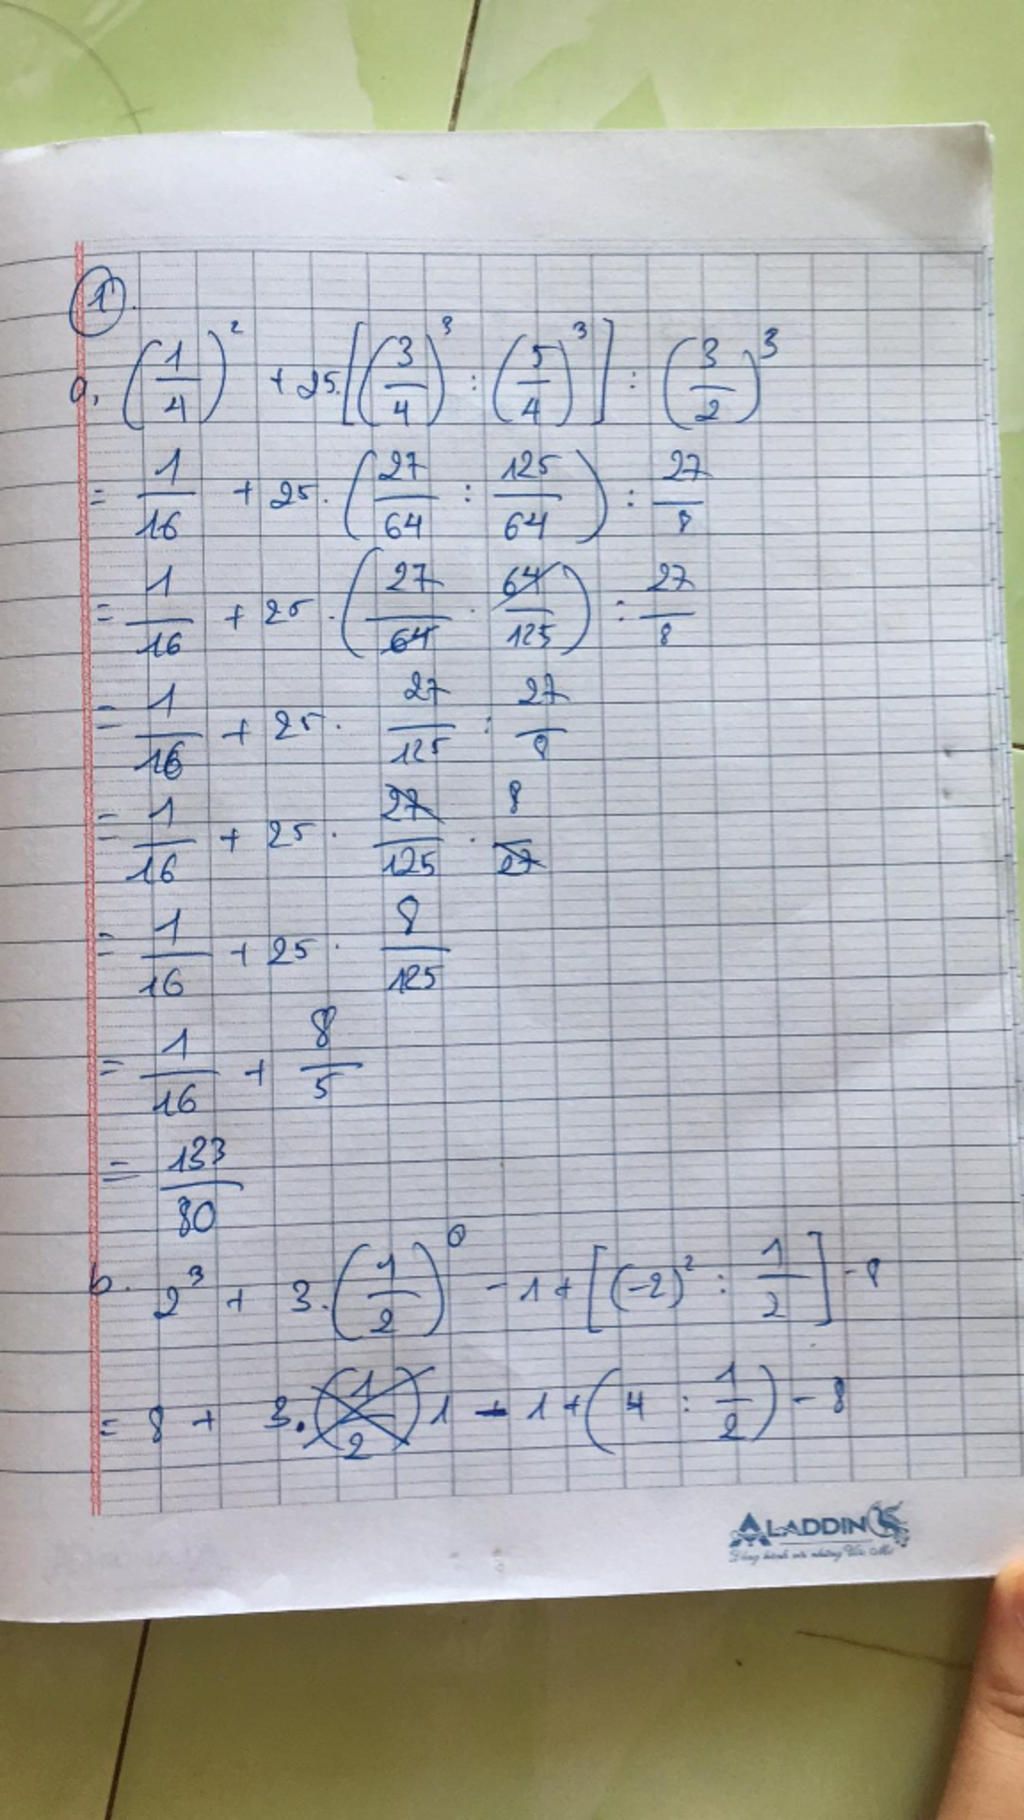 1.
a, (1/4)² + 25.[(3/4)³ : (5/4)³] : (3/2)³
= 1/16 + 25. (27/64 : 125/64) : 27/8
= 1/16 + 25 . (27/64 . 64/125) : 27/8
= 1/16 + 25 . 27/125 : 27/8
= 1/16 + 25 . 27/125 . 8/27
= 1/16 + 25 . 8/125
= 1/16 + 8/5
= 133/80
b. 2³ + 3.(1/2)⁰ - 1 + [(-2)² : 1/2] - 8
= 8 + 3.(1/2) 1 - 1 + (4 : 1/2) - 8
ALADDIN